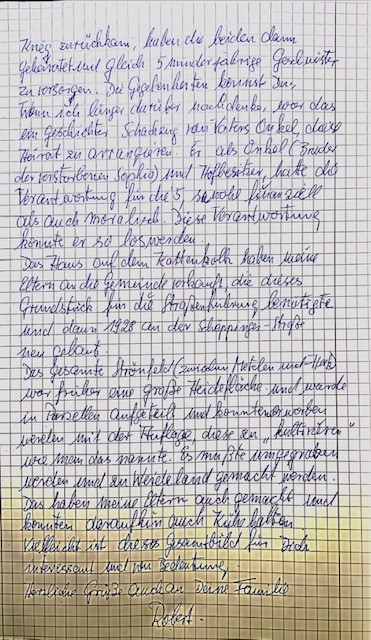 Krieg zurückkam, haben die beiden dann
geheiratet und gleich 5 minderjährige Geschwister
zu versorgen. Die Gegebenheiten kennst Du.
Wenn ich länger darüber nachdenke, war das
ein geschickter Schachzug von Vaters Onkel, diese
Heirat zu arrangieren. Er als Onkel (Bruder
der verstorbenen Sophia) und Hofbesitzer, hatte die
Verantwortung für die 5, sowohl finanziell
als auch moralisch. Diese Verantwortung
konnte er so loswerden.
Das Haus auf dem Kattenkolk haben meine
Eltern an die Gemeinde verkauft, die dieses
Grundstück für die Straßenführung benötigte
und dann 1928 an der Schöppinger-Straße
neu gebaut.
Das gesamte Strönfeld (zwischen Metelen und
war früher eine große Heidefläche und wurde
in Parzellen aufgeteilt und konnten erworben
werden mit der Auflage, diese zu „kultivieren"
wie man das nannte. Es mußte umgegraben
werden und zu Weideland gemacht werden.
Das haben meine Eltern auch gemacht und
konnten daraufhin auch Kühe halten.
Vielleicht ist dieses Gesamtbild für Dich
interessant und von Bedeutung.
Herzliche Grüße auch an Deine Familie
Robert.